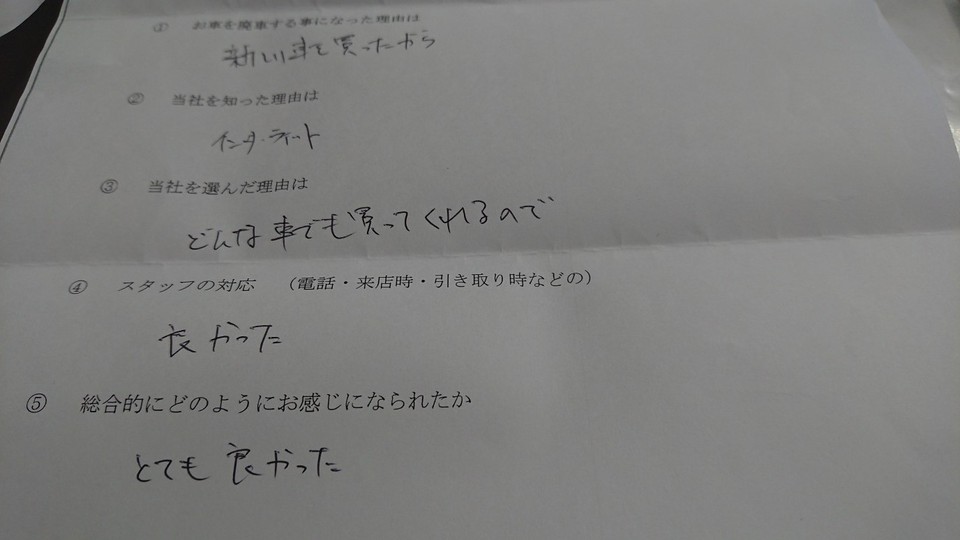 ① お車を廃車する事になった理由は
新しい車を買ったから
② 当社を知った理由は
インターネット
③ 当社を選んだ理由は
どんな車でも買ってくれるので
④ スタッフの対応 (電話・来店時・引き取り時などの)
良かった
⑤ 総合的にどのようにお感じになられたか
とても良かった